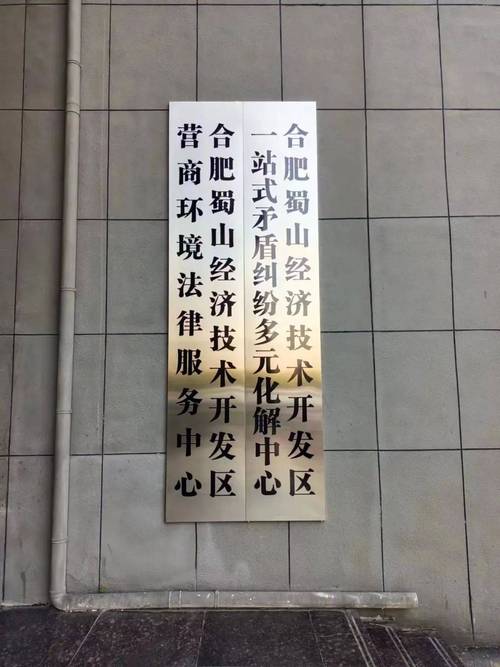 合肥蜀山经济技术开发区
一站式矛盾纠纷多元化解中心
合肥蜀山经济技术开发区
营商环境法律服务中心